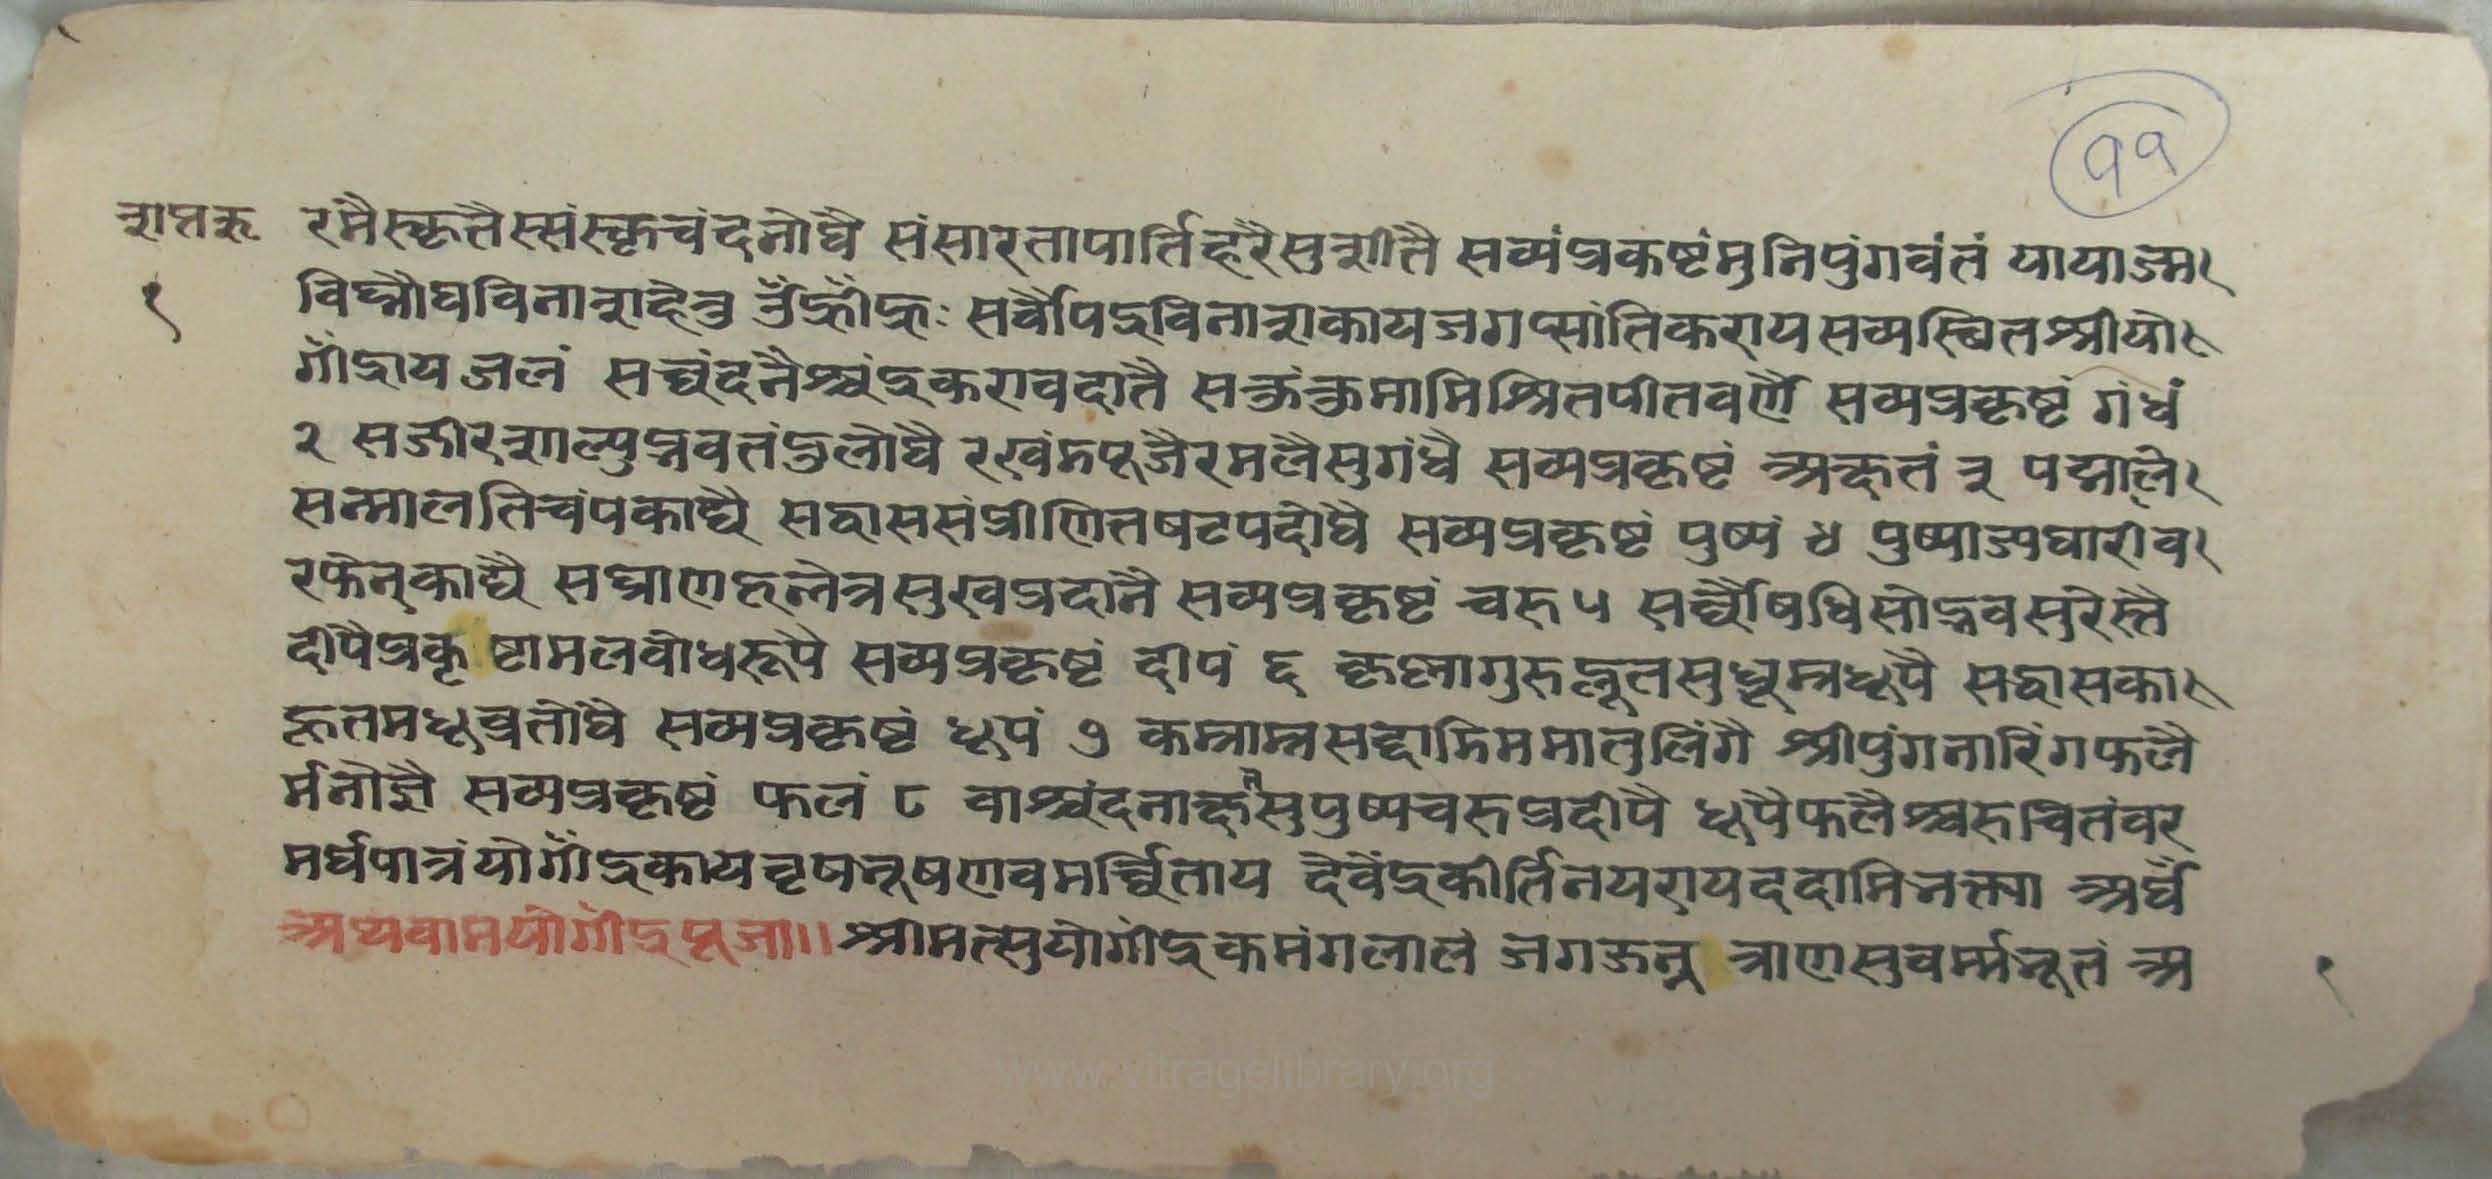 ११
शांतरू रमैस्कृतैस्संस्कृचंदनोघै संसारतापार्तिहरैसुशीतै सव्यंप्रकष्टंमुनिपुंगवंतं यायाज्म
१ विघ्नौघविनाशहेतु ॐह्रौंह्रः सर्वोपद्रविनाशकायजगत्सांतिकरायसव्यस्छितश्रीयो
गींद्राय जलं सच्चंदनैश्चंद्रकरावदातै सक्तंक्तमामिश्रितपीतवर्णै सव्यप्रकृष्टं गंधं
२ सज्जीरशाल्युन्नवतंडुलोघै रखंडपूजैरमलैसुगंधै सव्यप्रकृष्टं अक्षतं ३ पद्मालै
सन्मालतिचंपकाद्यै सद्वाससंप्रीणितषटपदोघै सव्यप्रकृष्टं पुष्पं ४ पुष्पाज्यघारीव
रफेनकाद्यै सघ्राणहृन्नेत्रसुखप्रदानै सव्यप्रकृष्टं चरु ५ सर्वौषधिसोद्भवसुरेस्तै
दीपैप्रकृष्टामलबोधरूपै सव्यप्रकृष्टं दीपं ६ कृष्णागुरुद्भूतसुधूम्रधूपै सद्वासका
हृतमधूव्रतोघै सव्यप्रकृष्टं धूपं ७ कम्राम्रसद्दाडिममातुलिंगै श्रीपुंगनारिंगफलै
र्मनोज्ञै सव्यप्रकृष्टं फलं ८ वाश्चंदनाक्षतैसुपुष्पचरुप्रदीपै धूपैफलैश्चरुचितंवर
मर्घपात्रंयोगींद्रकायवृषभूषणवमर्च्चिताय देवेंद्रकीर्तिनयरायददामिभक्त्या अर्घं
अथवामयोगींद्रपूजा।। श्रीमत्सुयोगींद्रकमंगलालं जगज्जनत्राणसुवर्म्मभूतं अ
१
www.vitragelibrary.org